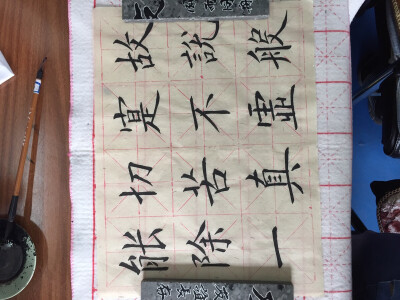 能除一
切苦真
寔不虛
故說般